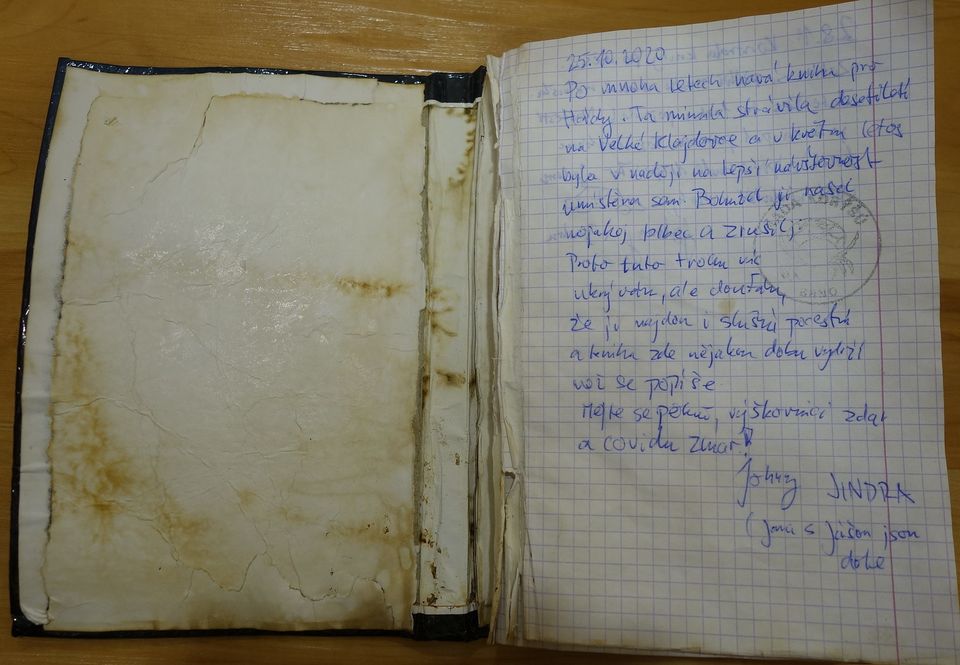 25.10.2020
Po mnoha letech nová kniha pro
Hády. Ta minulá strávila desetiletí
na Velké Klajdovce a v květnu letos
byla v naději na lepší návštěvnost
umístěna sem. Bohužel ji našel
nějakej blbec a zrušil ji.
Proto tuto trochu víc
ukrývám, ale doufám,
že ji najdou i slušní pocestní
a kniha zde nějakou dobu vydrží
než se popíše
Mějte se pěkně, výškovníci zdar
a covidu zmar!
JINDRA
(Jana s
dole